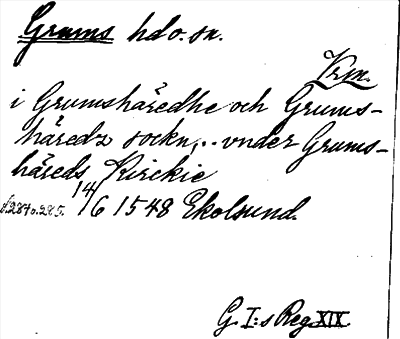 Grums hdo. sn.
Vrm.
i Grumshäredhe och Grums-
häredz sockn,.. vnder Grums-
häreds Kirckie
s. 284 o. 285. 14/6 1548 Ekolsund.
G. I:s Reg. XIX.